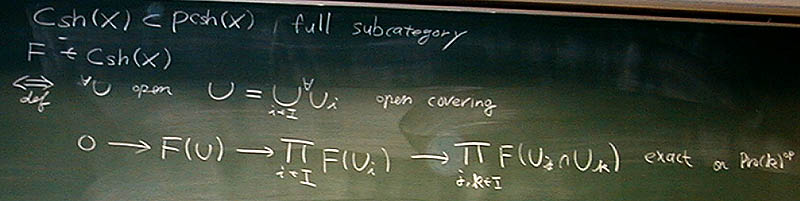 Csh(X) ⊂ pcsh(X) full subcategory
F ∈ Csh(X)
⟺def ∀U open U = ∪i∈I ∀Ui open covering
0 → F(U) → ∏i∈I F(Ui) → ∏j,k∈I F(Uj ∩ Uk) exact in Pro(k)op